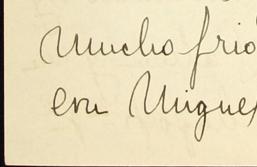 Mucho frio
con Miguel